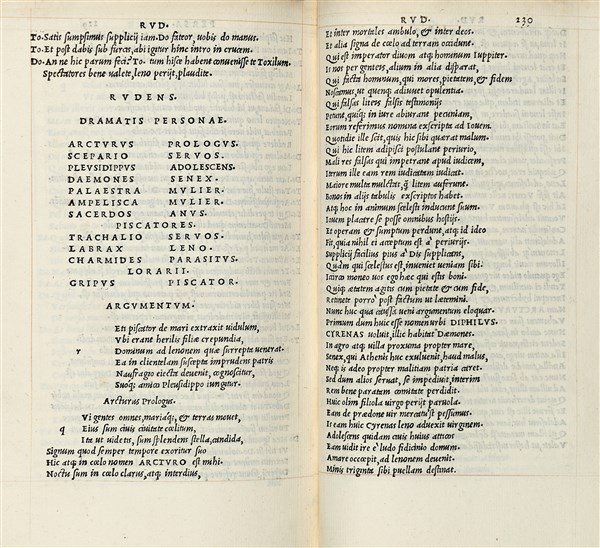 RVD.
To. Satis sumpsimus supplicij iam. Do fateor, uobis do manus.
To. Et post dabis sub furcis, abi igitur hinc intro in crucem.
Do. An ne hic parum feci? To. tum hisce habent conuenisse te Toxilum.
Spectatores bene ualete, leno perijt, plaudite.
RVDENS.
DRAMATIS PERSONAE.
ARCTVRVS PROLOGVS.
SCEPARIO SERVOS.
PLEVSIDIPPVS ADOLESCENS.
DAEMONES SENEX.
PALAESTRA MVLIER.
AMPELISCA MVLIER.
SACERDOS ANVS.
PISCATORES.
TRACHALIO SERVOS.
LABRAX LENO.
CHARMIDES PARASITVS.
LORARII.
GRIPVS PISCATOR.
ARGVMENTVM.
Eti piscator de mari extraxit uidulum,
Vbi erant herilis filiae crepundia,
r Dominum ad lenonem quae surrepta uenerat.
Ea in clientelam suscepta imprudens patris
Naufragio eiecta deuenit, cognoscitur,
Suoq; amico Pleusidippo iungitur.
Arcturus Prologus.
Vi gentes omnes, mariaq;, & terras mouet,
q Eius sum ciuis ciuitate cœlitum,
Ita ut uidetis, sum splendens stella, candida,
Signum quod semper tempore exoritur suo
Hic atq; in cœlo nomen ARCTVRO est mihi.
Noctu sum in cœlo clarus, atq; interdius,
RVD. 230
Et inter mortales ambulo, & inter deos.
Et alia signa de cœlo ad terram accidunt.
Qui est imperator diuom atq; hominum Iuppiter.
Is nos per genteis, alium in alia disparat,
Qui facta hominum, qui mores, pietatem, & fidem
Noscamus, ut quenq; adiuuet opulentia.
Qui falsas liteis falsis testimonijs
Petunt, quiq; in iure abiurant pecuniam,
Eorum referimus nomina exscripta ad Iouem.
Quotidie ille scit, quis hic sibi quærat malum.
Qui hic litem adipisci postulant periurio,
Mali res falsas qui impetrant apud iudicem,
Iterum ille eam rem iudicatam iudicat.
Maiore multa multctat, q̃ litem auferunt.
Bonos in alijs tabulis exscriptos habet.
Atq; hoc in animum scelesti inducunt suum,
Iouem placere se posse omnibus hostijs.
Et operam & sumptum perdunt, atq; id ideo
Fit, quia nihil ei acceptum est à periurijs.
Supplicij facilius pius à Dis supplicans,
Quàm qui scelestus est, inueniet ueniam sibi.
Iccirco moneo uos ego hæc qui estis boni.
Quiq; ætatem agitis cum pietate & cum fide,
Retinete porrò post factum ut lætemini.
Nunc huc qua caussa ueni argumentum eloquar.
Primum dum huic esse nomen urbi DIPHILVS.
CYRENAS uoluit, illic habitat Dæmones.
In agro atq; uilla proxuma propter mare,
Senex, qui Athenis huc exuluenit, haud malus,
Neq; is adeo propter malitiam patria caret.
Sed dum alios seruat, se impediuit, interim
Rem bene paratam comitate perdidit.
Huic olim filiola uirgo perijt paruola.
Eam de prædone uir mercatust pessimus.
Is eam huc Cyrenas leno aduexit uirginem.
Adolescens quidam ciuis huius atticos
Eam uidit ire è ludo fidicinio domum.
Amare occœpit, ad lenonem deuenit.
Minis trigintæ sibi puellam destinat.